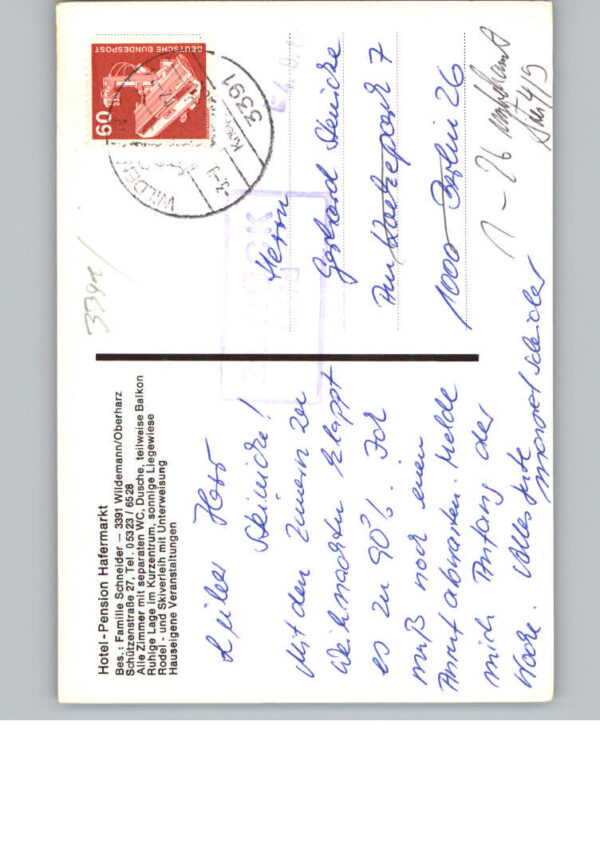 Hotel-Pension Hafermarkt
Bes.: Familie Schneider — 3391 Wildemann/Oberharz
Schützenstraße 27, Tel. 05323 / 6528
Alle Zimmer mit separaten WC, Dusche, teilweise Balkon
Ruhige Lage im Kurzentrum, sonnige Liegewiese
Rodel- und Skiverleih mit Unterweisung
Hauseigene Veranstaltungen
Lieber Herr
Steinicke!
Mit den Zimern zu
Weihnachten klappt
es zu 90%. Ich
muß noch einen
Anruf abwarten. Melde
mich Anfang der
Woche. Alles Gute
3391
60
DEUTSCHE BUNDESPOST
WILDEM
3391
Herrn
Gerhard Steinicke
7
1000 Berlin 26
1-26
ZURÜCK